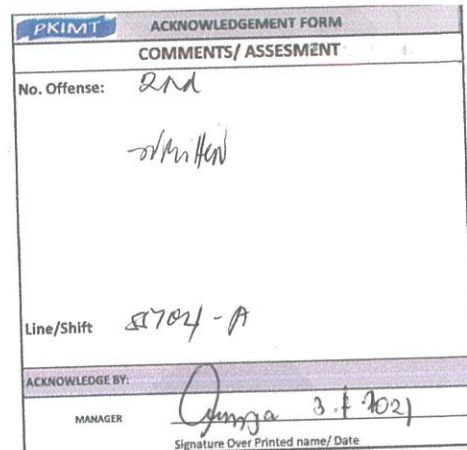 PKIMT ACKNOWLEDGEMENT FORM
COMMENTS/ ASSESMENT
No. Offense: 2nd
written
Line/Shift
ACKNOWLEDGE BY:
MANAGER
Signature Over Printed name/ Date